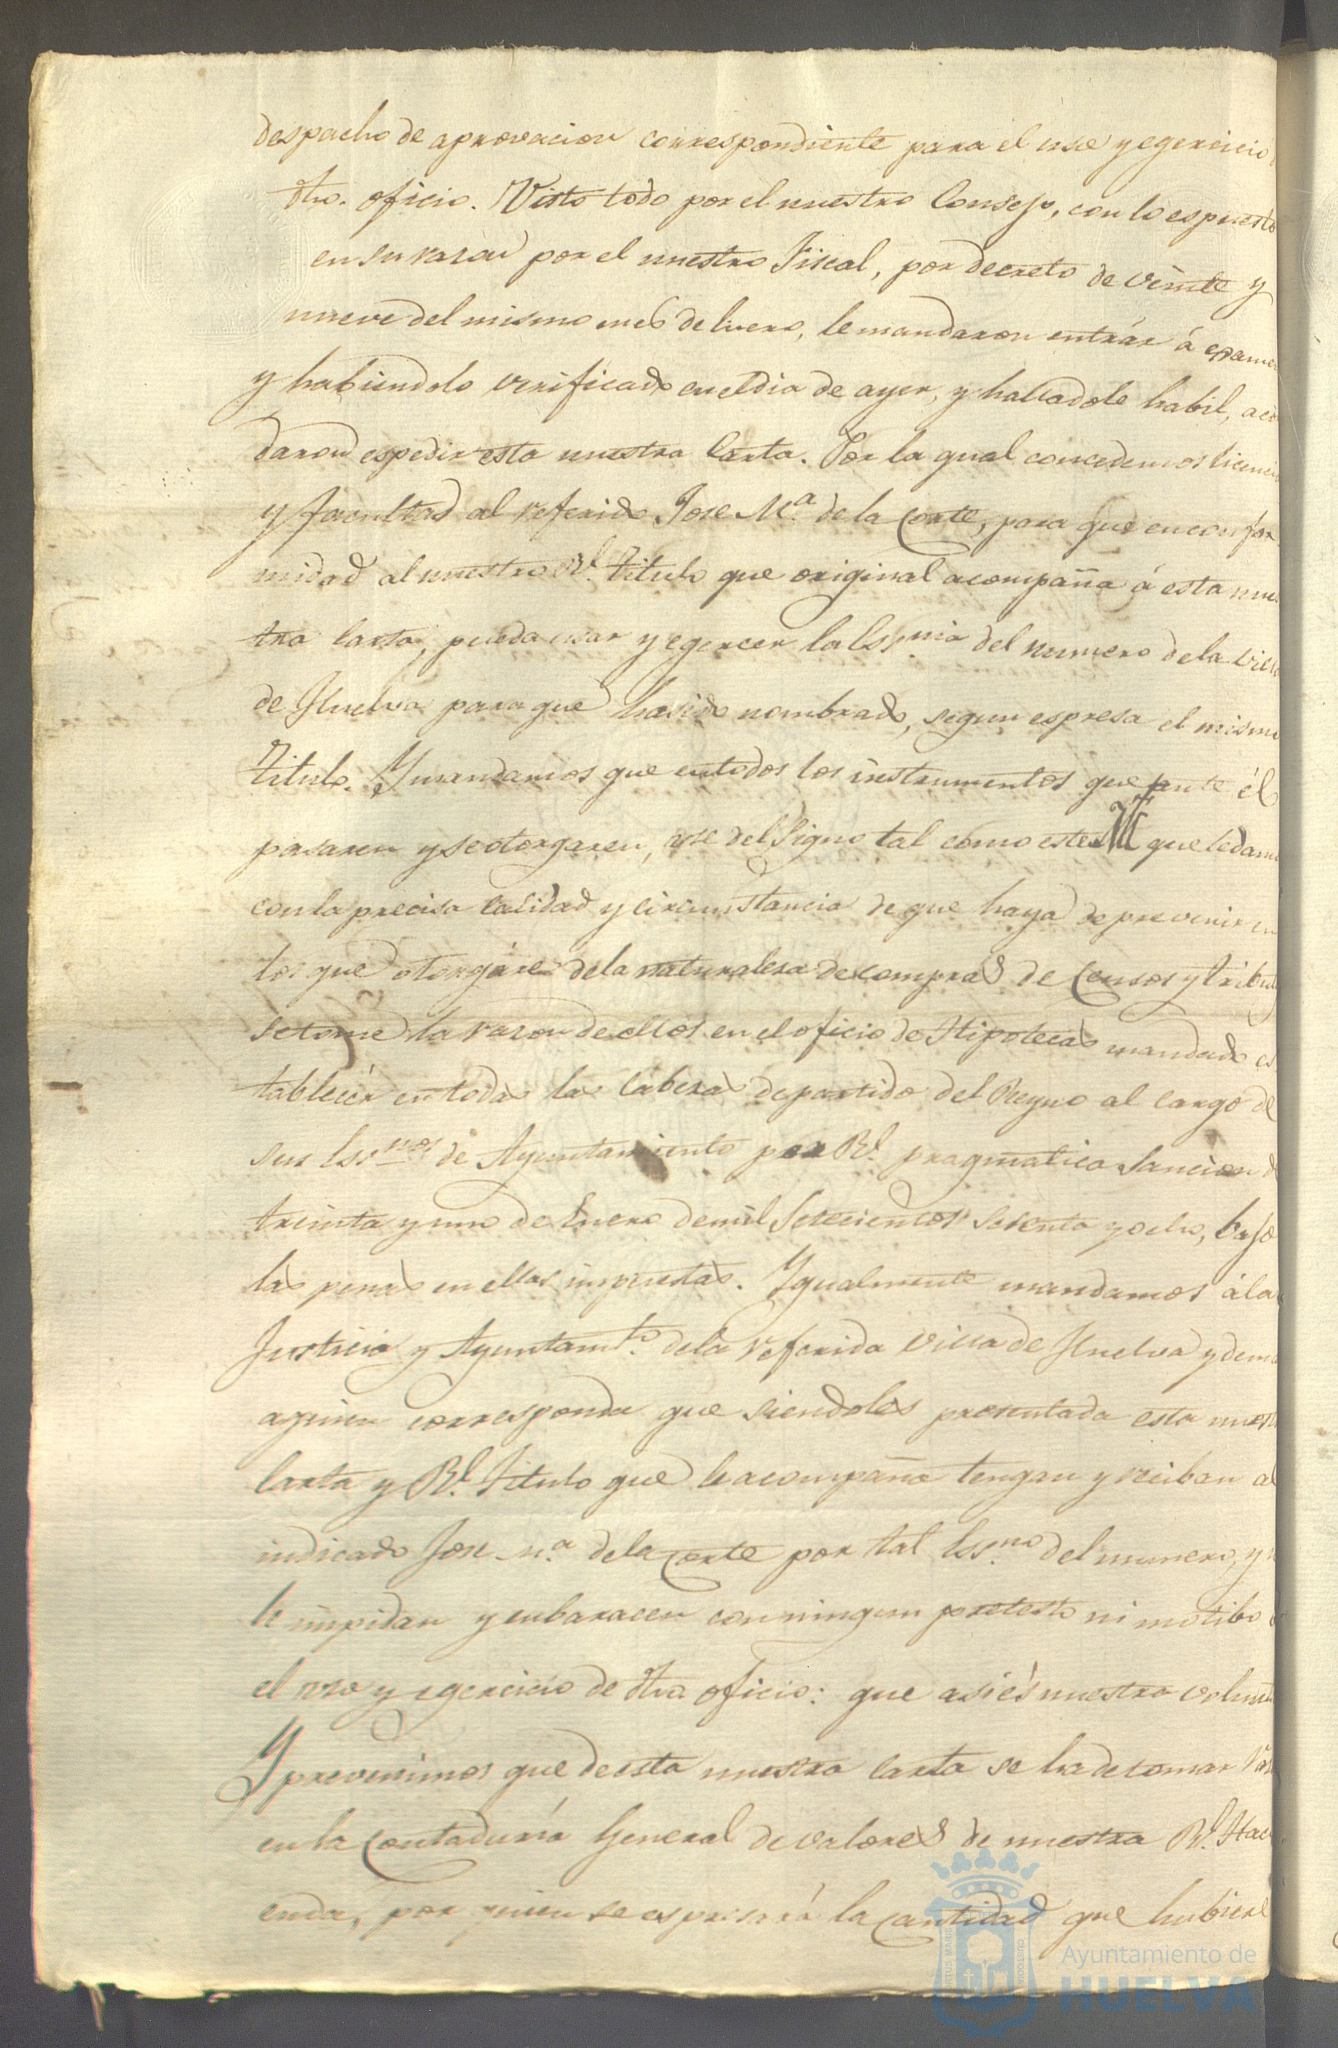 despacho de aprovacion correspondiente para el uso y egercicio
dho. oficio. Visto todo por el nuestro Consejo, con lo espuesto
en su razon por el nuestro Fiscal, por decreto de veinte y
nueve del mismo mes de Enero, le mandaron entrár á examen
y habiendolo verificado en el dia de ayer, y halladole habil, acor
daron espedir esta nuestra Carta. Por la qual concedemos licencia
y facultad al referido Jose Mª. de la Corte, para que en confor
midad al nuestro Rl. titulo que original acompaña á esta nues
tra Carta, pueda usar y egercer la Essnia del numero de la villa
de Huelva para que ha sido nombrado, segun espresa el mismo
titulo. Y mandamos que en todos los instrumentos que ante él
pasaren y se otorgaren, use del Signo tal como este que le damos
con la precisa calidad y circunstancia de que haya de prevenir en
los que otorgáre de la naturaleza de compras de Censos y tributos
se tome la razon de ellos en el oficio de Hipotecas mandado es
tablecer en todas las Cabezas de partido del Reyno al cargo de
sus Essnos de Ayuntamiento por Rl. pragmatica Sancion de
treinta y uno de Enero de mil Setecientos sesenta y ocho, bajo
las penas en ellas impuestas. Igualmente mandamos á la
Justicia y Ayuntamto. de la referida Villa de Huelva y demas
a quien corresponda que siendoles presentada esta nuestra
Carta y Rl. Titulo que le acompaña tengan y reciban al
indicado Jose Mª. de la Corte por tal Essno. del numero, y no
le impidan y embaracen con ningun pretesto ni motibo
el uso y egercicio de dho oficio: que asi és nuestra volunt
Y prevenimos que de esta nuestra Carta se ha de tomar razon
en la Contaduría General de valores de nuestra Rl. Haci
enda, por quien se espresará la Cantidad que hubiere
Ayuntamiento de
HUELVA